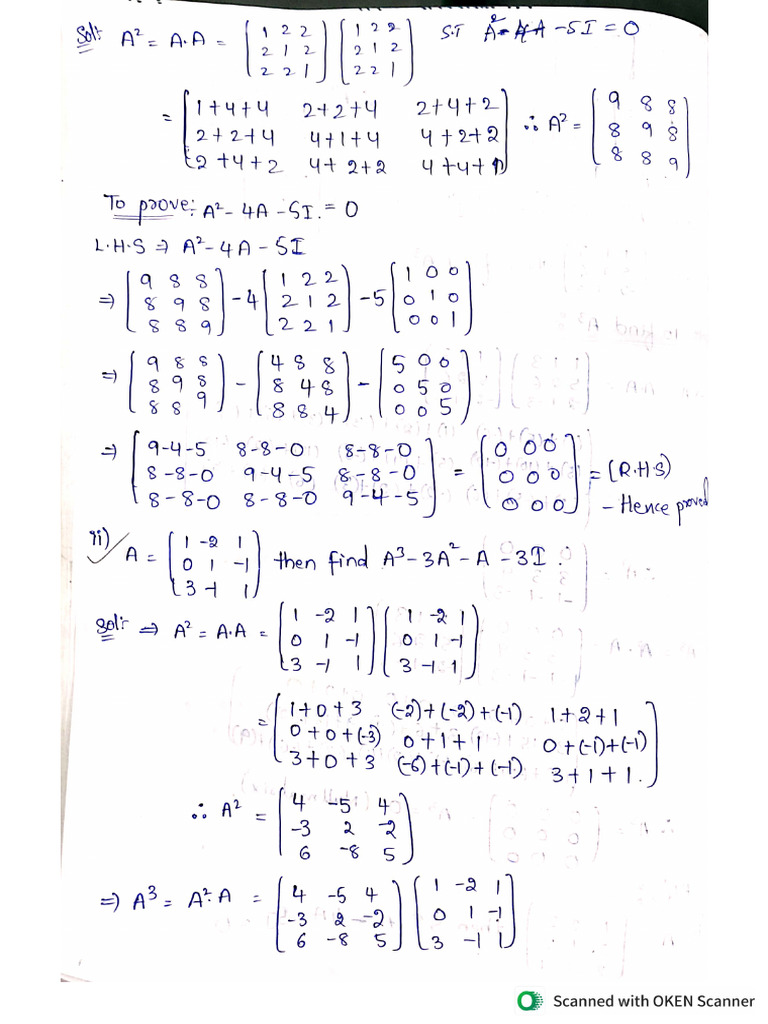 Sol:- A² = A.A = [1 2 2; 2 1 2; 2 2 1] [1 2 2; 2 1 2; 2 2 1] S.T A² - 4A - 5I = 0
= [1+4+4 2+2+4 2+4+2; 2+2+4 4+1+4 4+2+2; 2+4+2 4+2+2 4+4+1] ∴ A² = [9 8 8; 8 9 8; 8 8 9]
To prove: A² - 4A - 5I. = 0
L.H.S ⇒ A² - 4A - 5I
⇒ [9 8 8; 8 9 8; 8 8 9] - 4 [1 2 2; 2 1 2; 2 2 1] - 5 [1 0 0; 0 1 0; 0 0 1]
⇒ [9 8 8; 8 9 8; 8 8 9] - [4 8 8; 8 4 8; 8 8 4] - [5 0 0; 0 5 0; 0 0 5]
⇒ [9-4-5 8-8-0 8-8-0; 8-8-0 9-4-5 8-8-0; 8-8-0 8-8-0 9-4-5] = [0 0 0; 0 0 0; 0 0 0] = (R.H.S)
- Hence proved
ii) A = [1 -2 1; 0 1 -1; 3 -1 1] then find A³ - 3A² - A - 3I.
Sol:- ⇒ A² = A.A = [1 -2 1; 0 1 -1; 3 -1 1] [1 -2 1; 0 1 -1; 3 -1 1]
= [1+0+3 (-2)+(-2)+(-1) 1+2+1; 0+0+(-3) 0+1+1 0+(-1)+(-1); 3+0+3 (-6)+(-1)+(-1) 3+1+1.]
∴ A² = [4 -5 4; -3 2 -2; 6 -8 5]
⇒ A³ = A².A = [4 -5 4; -3 2 -2; 6 -8 5] [1 -2 1; 0 1 -1; 3 -1 1]
Scanned with OKEN Scanner